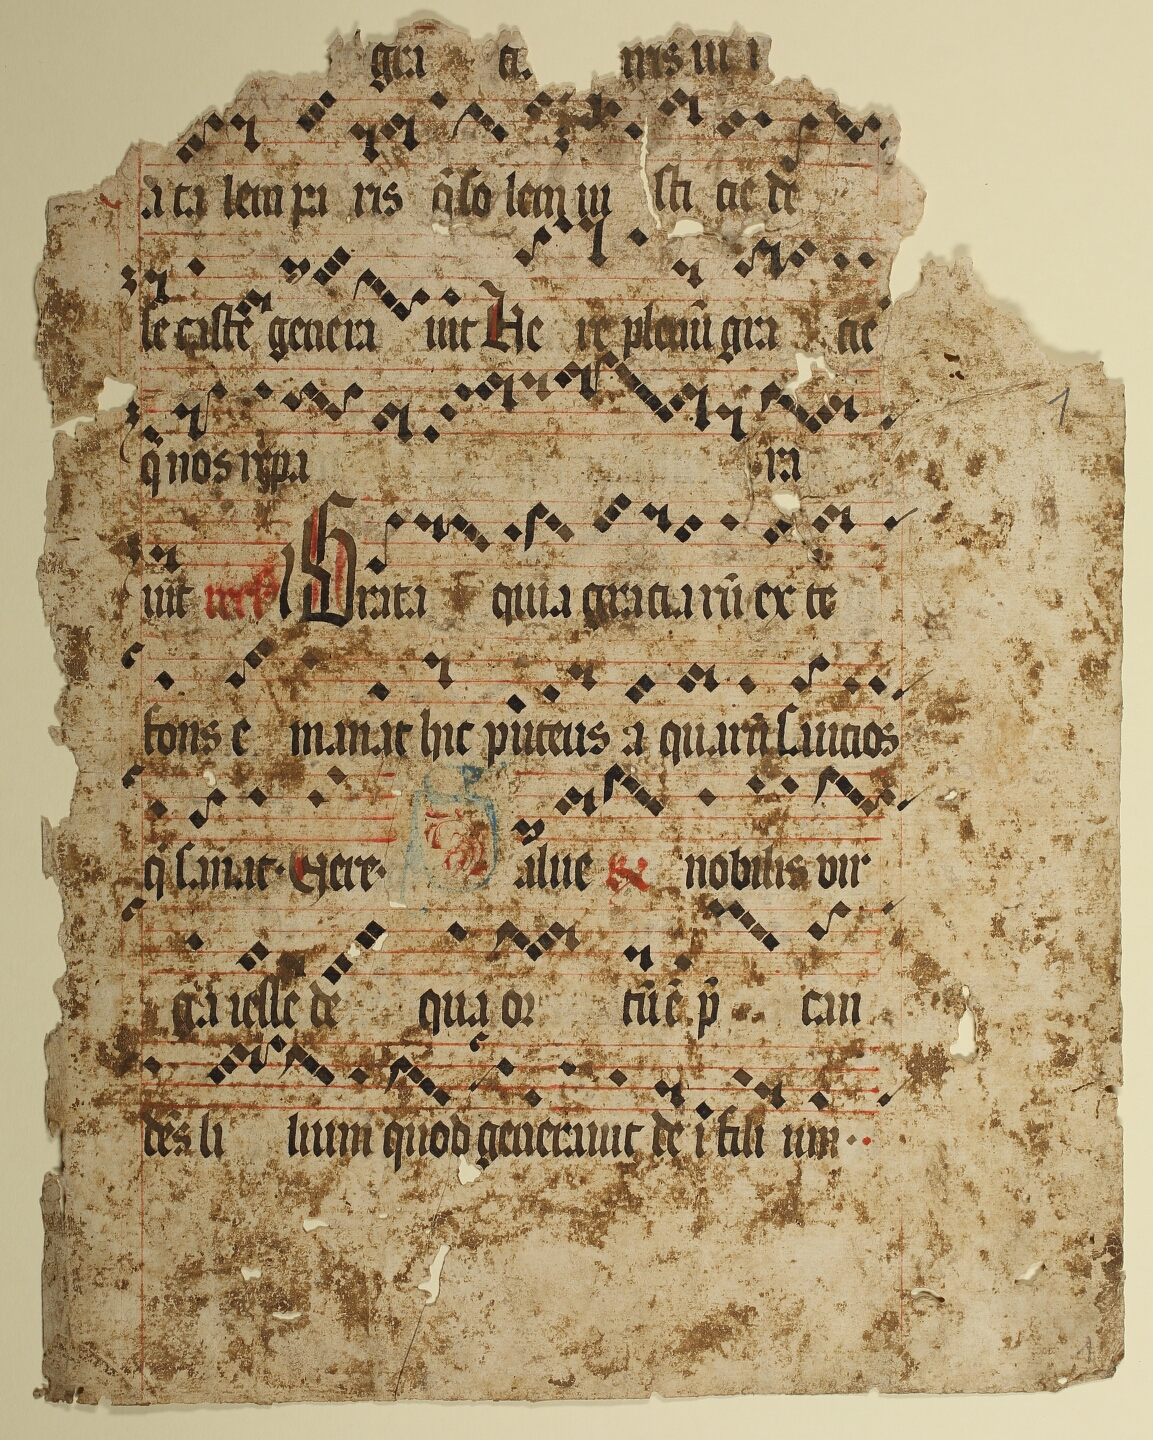 gra ci
a ta lem pa ris q̄ so lem ni sti tie de
le caste genera uit He re plenū gra cie
q̄ nos rep̱a ra
uit Grata quia graciarū ex te
fons e manat hic puteus a quarū sancios
q̄ sanat. Here. alue nobilis vir
ga iesse de qua or tū ē p̄ can
des li lium quod generauit de i fili um
1